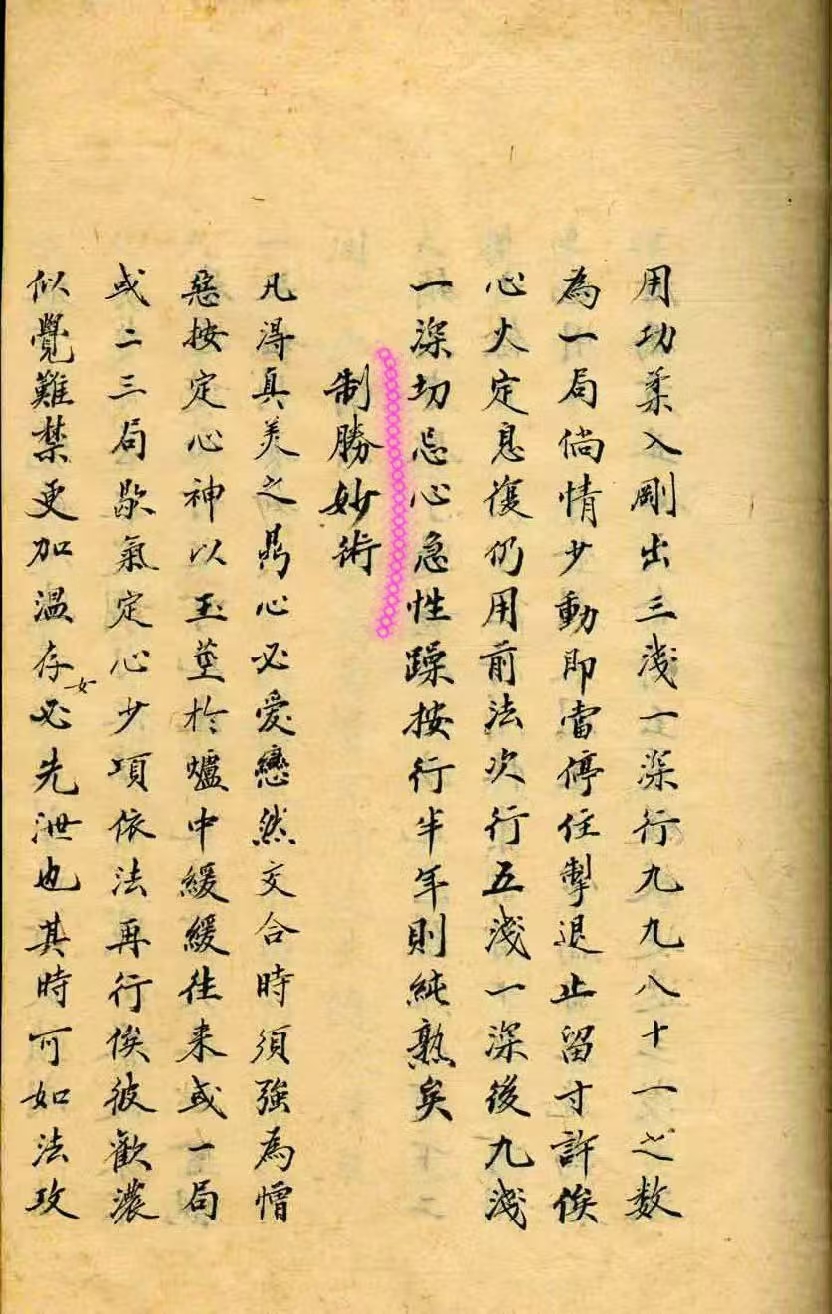 用功柔入剛出三淺一深行九九八十一之数
為一局倘情少動即當停住掣退止留寸許俟
心火定息復仍用前法次行五淺一深後九淺
一深切忌心急性躁按行半年則純熟矣
制勝妙術
凡淂真美之鼎心必愛戀然交合時須強為憎
惡按定心神以玉莖於爐中緩緩往来或一局
或二三局歇氣定心少項依法再行俟彼歡濃
似覺難禁更加温存女必先泄也其時可如法攻